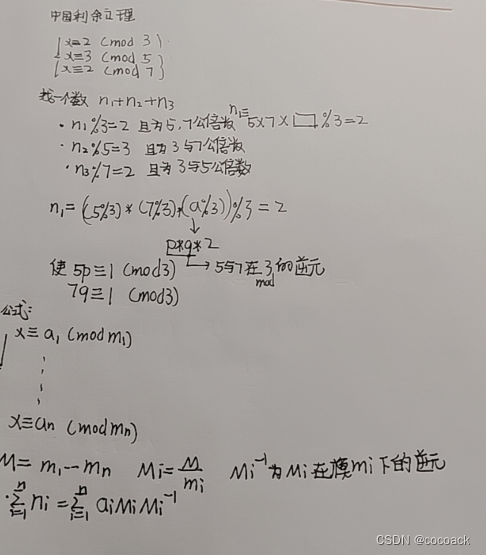 中国剩余定理
x≡2 (mod 3)
x≡3 (mod 5)
x≡2 (mod 7)
找一个数 n₁+n₂+n₃
· n₁%3=2 且为5,7公倍数 n₁= 5×7×□%3=2
· n₂%5=3 且为3与7公倍数
· n₃%7=2 且为3与5公倍数
n₁=((5%3)*(7%3)*(a%3))%3=2
p*q*2
使 5p≡1 (mod3) → 5与7在mod 3的逆元
7q≡1 (mod3)
公式:
x≡a₁ (mod m₁)
x≡an (mod mn)
M= m₁--mn Mi=M/mi Mi⁻¹为Mi在模mi下的逆元
·∑ⁿᵢ₌₁ ni =∑ⁿᵢ₌₁ aiMiMi⁻¹
CSDN @cocoack